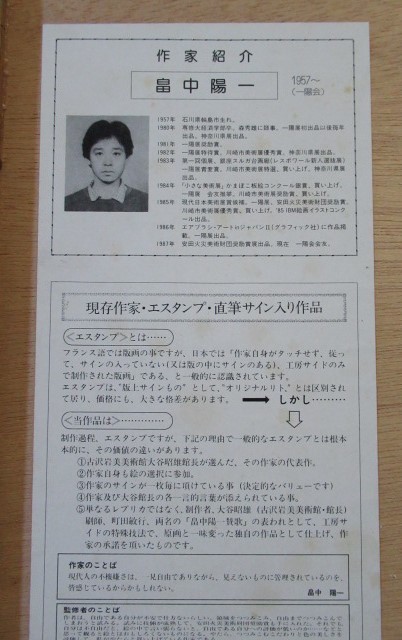 作家紹介
畠中陽一
1957〜
(一陽会)
1957年 石川県輪島市生れ。
1980年 専修大経済学部卒、森秀雄に師事、一陽展初出品以後毎年
出品、神奈川県展出品。
1981年 一陽展奨励賞。
1982年 一陽展特待賞、川崎市美術展優秀賞、神奈川県展出品。
1983年 第一回個展、銀座スルガ台画廊(レスポワール新人選抜展)
一陽展青麦賞、川崎市美術展特選、買い上げ、神奈川県展
出品。
1984年 「小さな美術展」かまぼこ板絵コンクール銀賞、買い上げ。
一陽展 会友推挙、川崎市美術展奨励賞、買い上げ。
1985年 現代日本美術選賞候補、一陽展、安田火災美術財団奨励賞、
川崎市美術展優秀賞、買い上げ、'85 IBM絵画イラストコンク
ール出品。
1986年 エアブラシ・アートinジャパンII(グラフィック社)に作品掲
載、一陽展出品。
1987年 安田火災美術財団奨励賞展出品、現在 一陽会会友。
現存作家・エスタンプ・直筆サイン入り作品
<エスタンプ>とは……
フランス語では版画の事ですが、日本では「作家自身がタッチせず、従っ
て、サインの入っていない(又は版の中にサインのある)、工房サイドのみ
で制作された版画」である、と一般的に認識されています。
エスタンプは、"版上サインもの" として、"オリジナルリト、" とは区別され
て居り、価格にも、大きな格差があります。 ➡ しかし………
<当作品は>…………
制作過程、エスタンプですが、下記の理由で一般的なエスタンプとは根本
本的に、その価値の違いがあります。
①古沢岩美美術館大谷昭雄館長が選んだ、その作家の代表作。
②作家自身も絵の選択に参加。
③作家のサインが一枚毎に頂けている事(決定的なバリューです)
④作家及び大谷館長の各一言的言葉が添えられている事。
⑤単なるレプリカではなく、制作者、大谷昭雄(古沢岩美美術館・館長)
刷師、町田敏行、両名の「畠中陽一賛歌」の表われとして、工房サ
イドの特殊技法で、原画と一味変った独自の作品として仕上げ、作
家の承諾を頂いたものです。
作家のことば
現代人の不機嫌さは、一見自由でありながら、見えないものに管理されているのを、
皆感じているからかもしれない。
畠中 陽一
監修者のことば